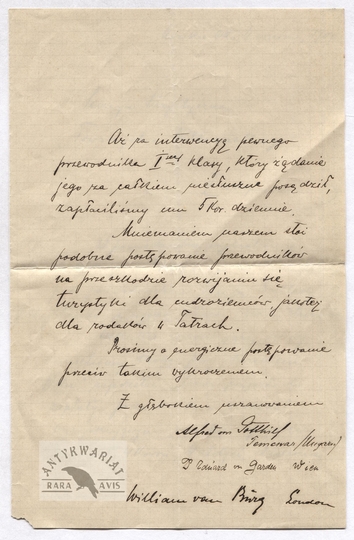 Aż za interwencyą pewnego
przewodnika I szej klasy, który żądanie
jego za całkiem niesłuszne posądził,
zapłaciliśmy mu 5 Kor. dziennie.
Mniemaniem naszem stoi
podobne postępowanie przewodników
na przeszkodzie rozwijaniu się
turystyki dla cudzoziemców jakoteż
dla rodaków w Tatrach.
Prosimy o energiczne postępowanie
przeciw takim wykroczeniom.
Z głębokiem uszanowaniem
Alfred von
Temesvar
Dr Eduard von Garden Wien
William van Bürg London
ANTYKWARIAT
RARA AVIS